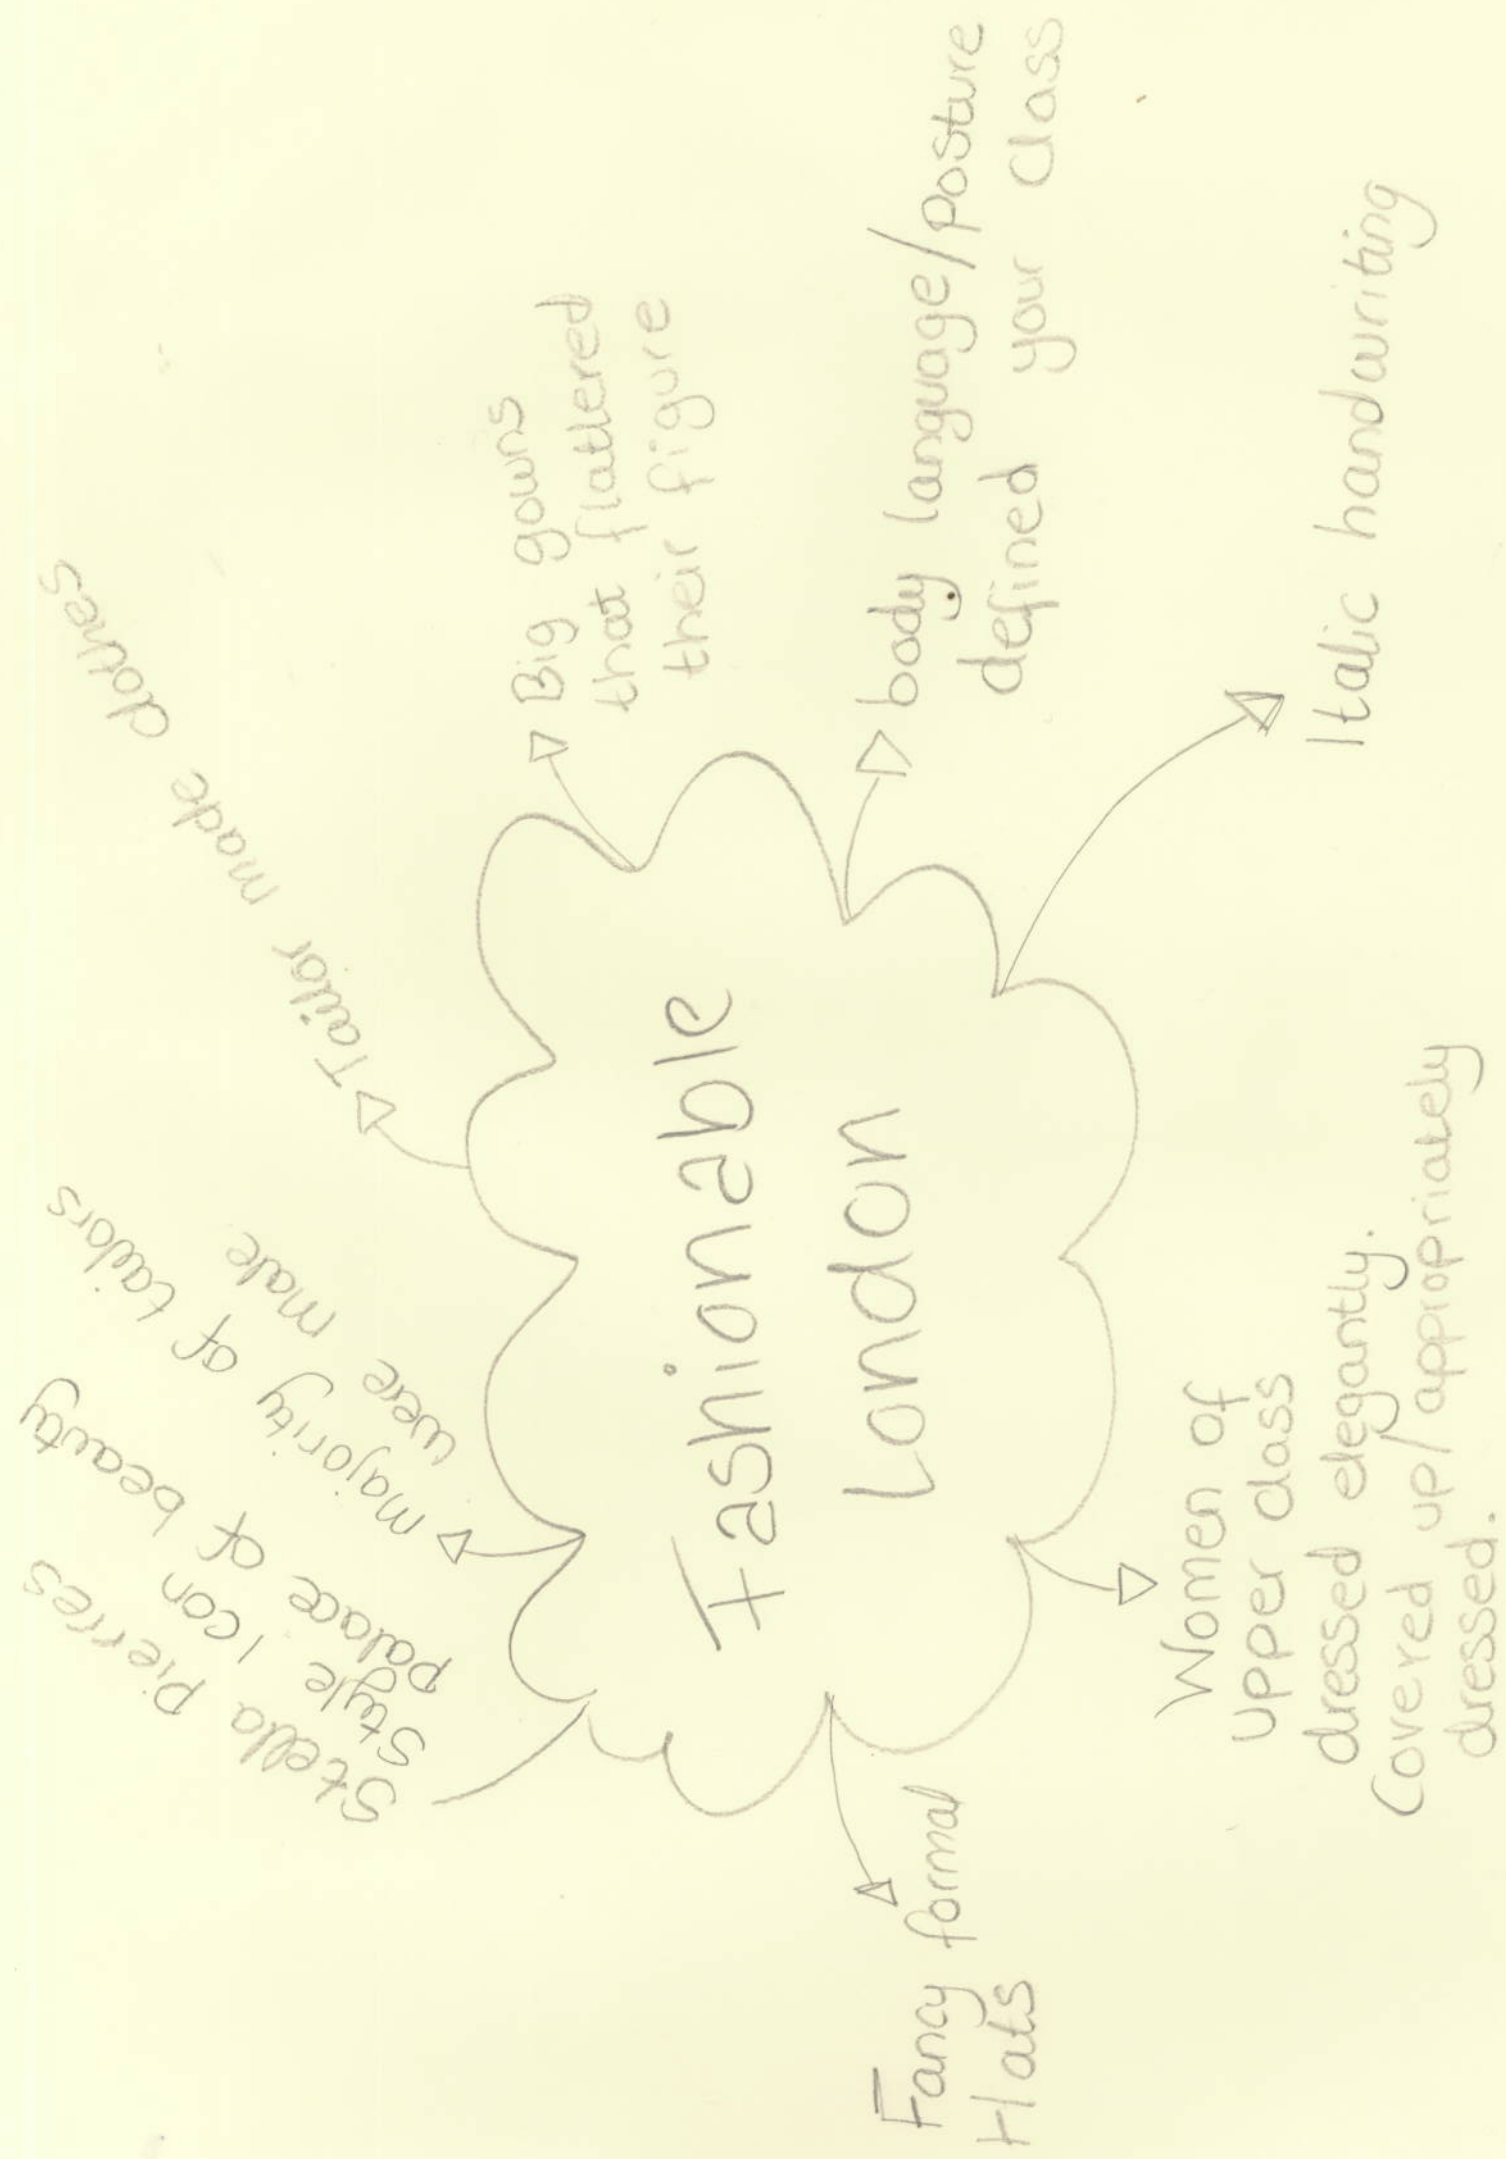 Fashionable
London
Stella Pierres
Style Icon
palace of beauty
majority of tailors
were male
Tailor made clothes
Big gowns
that flattered
their figure
body language/posture
defined your class
Italic handwriting
Women of
upper class
dressed elegantly.
Covered up/appropriately
dressed.
Fancy formal
Hats